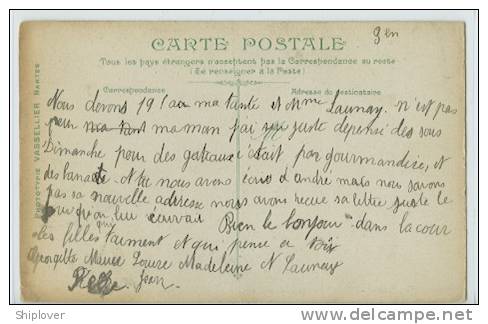 9 en
CARTE POSTALE
Tous les pays étrangers n'acceptent pas la Correspondance au recto
(Se renseigner à la Poste)
Correspondance
Adresse du destinataire
PHOTOTYPIE VASSELLIER NANTES
Nous devons 19 à ma tante et Mme Launay. n'est pas
pour ma tant maman j'ai juste depensé des sous
Dimanche pour des gateaux c'était par gourmandise, et
des nous avons écrit a andré mais nous savons
pas sa nouvelle adresse nous avons reçue sa lettre juste le
jour qu'on lui écrivait Bien le bonjour dans la cour
des filles qui t'aiment et qui pense a toi
Georgette Louise Madeleine Launay
Jean.
Shiplover
delcampe.net